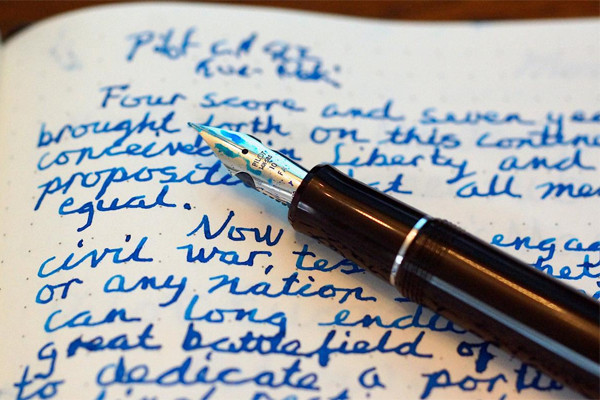 Four score and seven yea
brought forth on this contine
conceive in Liberty and
propositi hat all me
equal.
Now engag
civil war, tes
or any nation
can long endu
great battlefield of
to dedicate a porti
PILOT